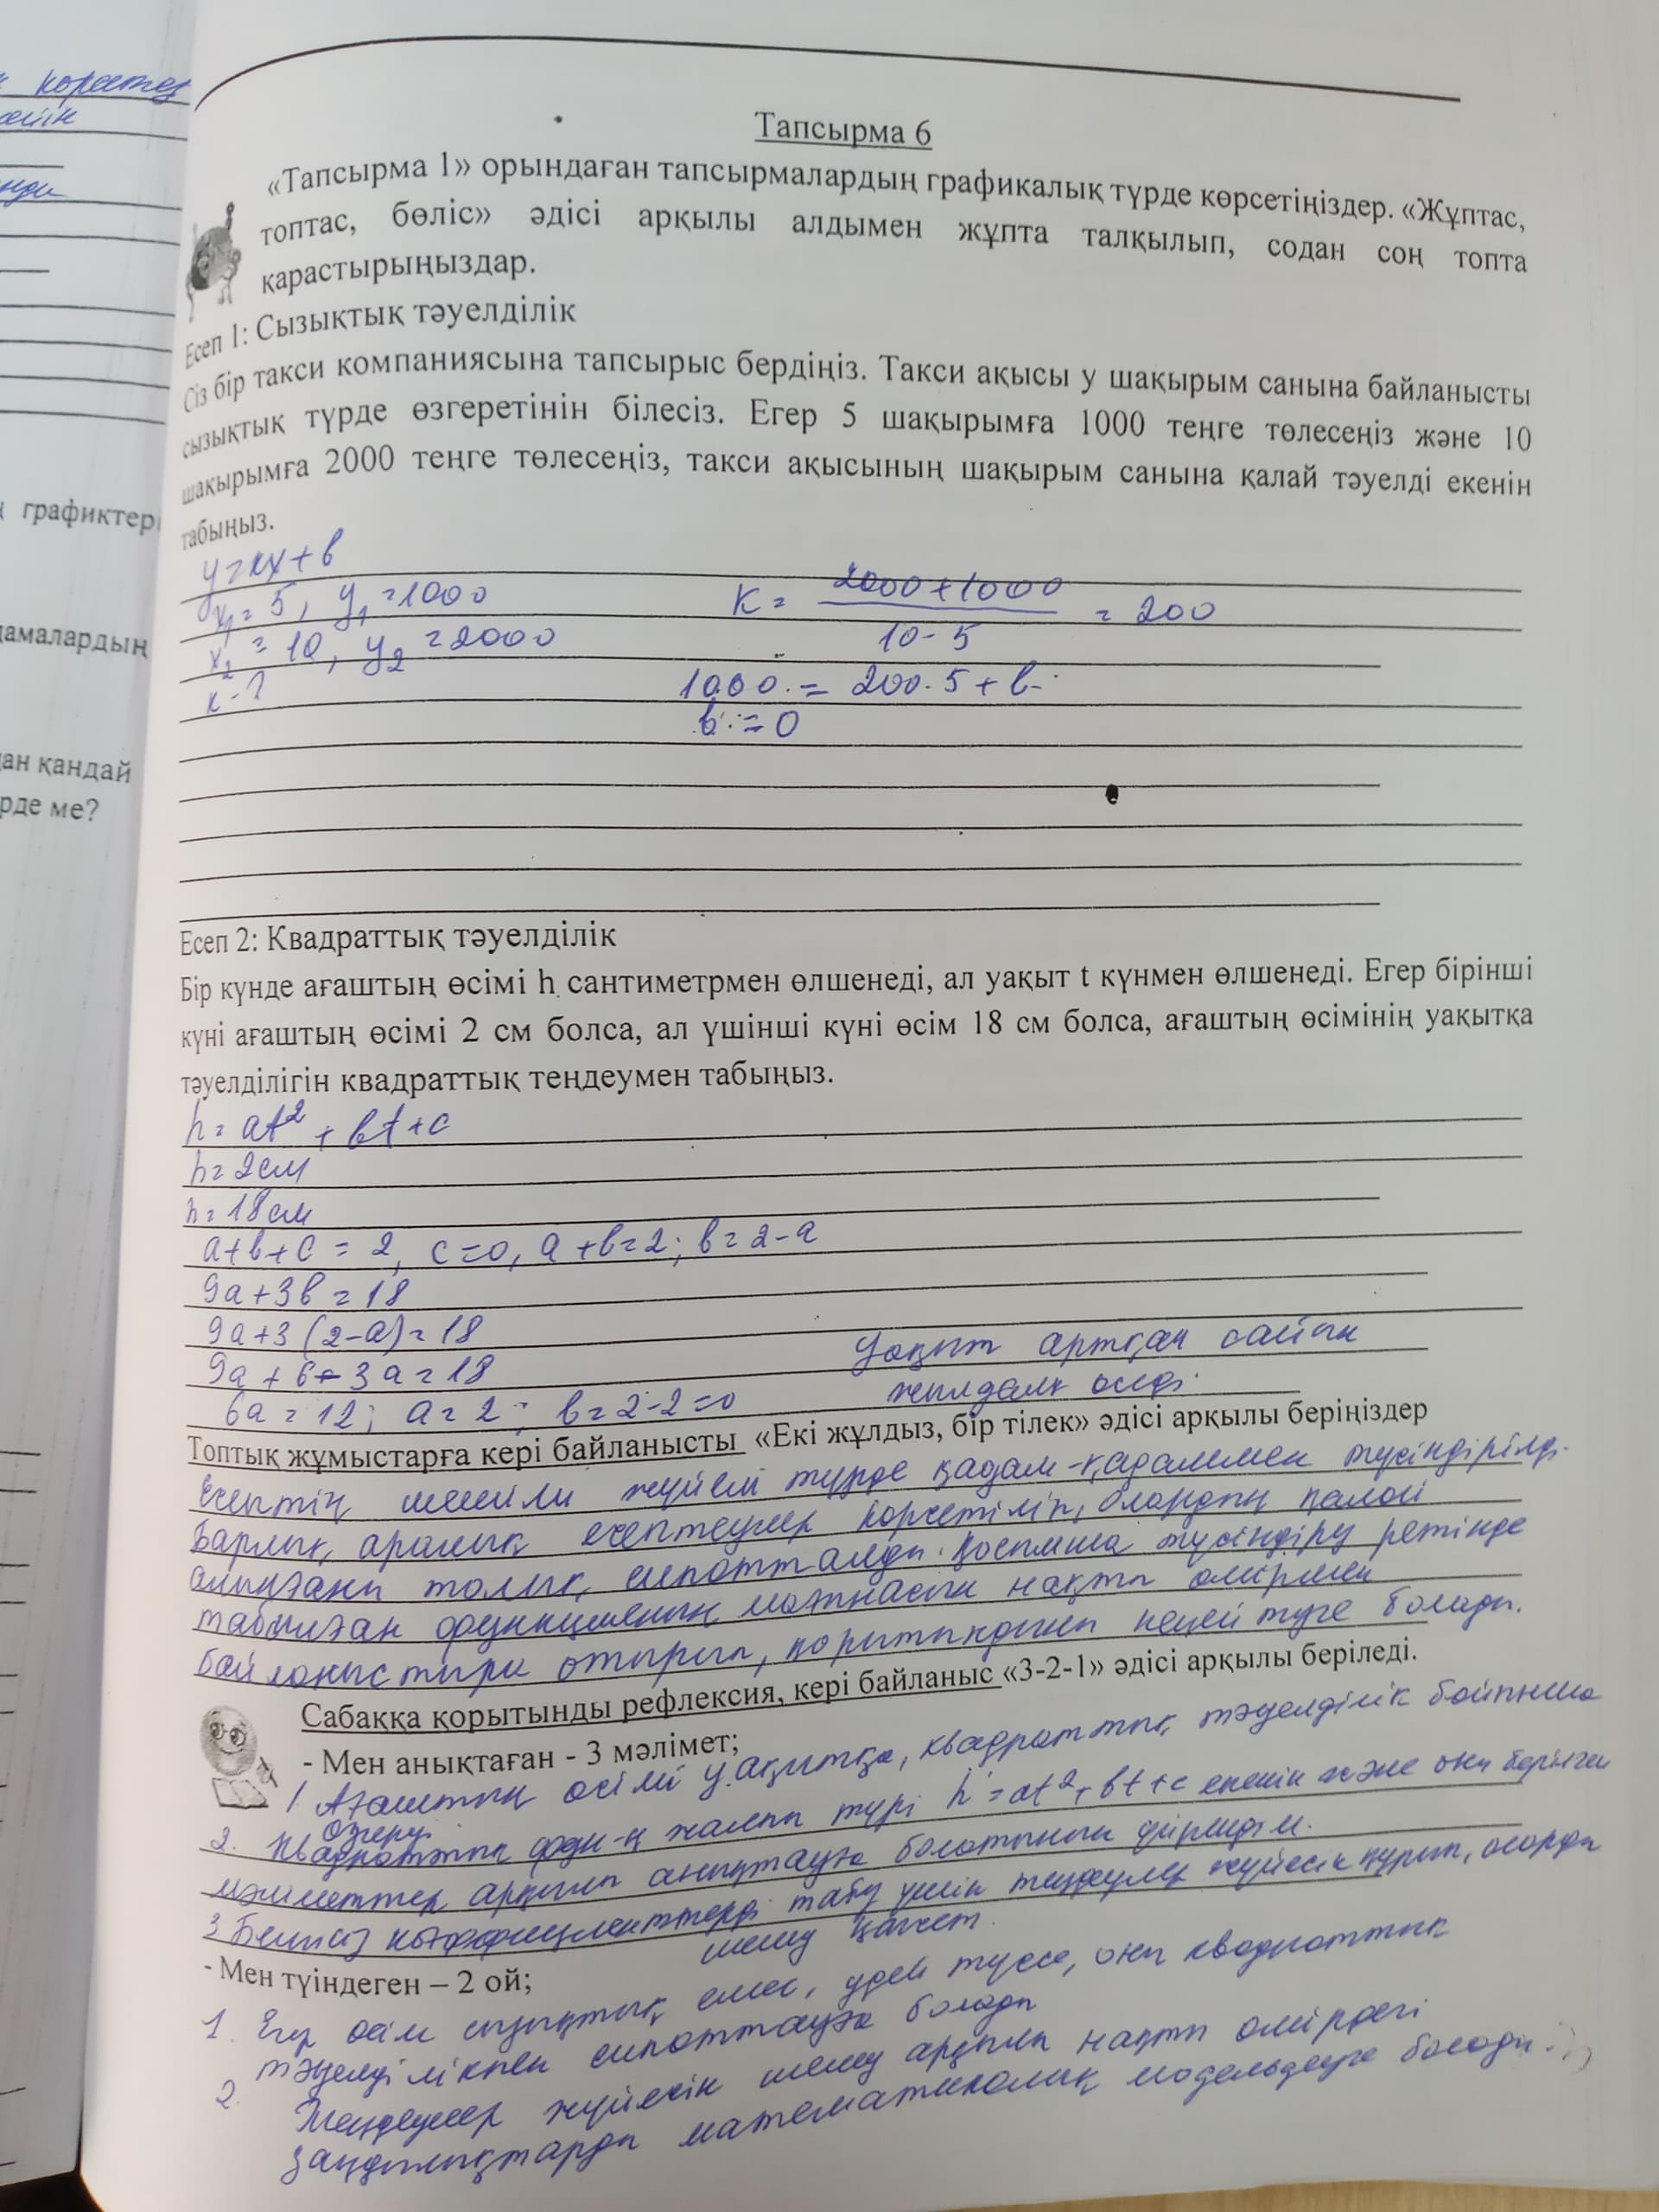 көрсетең
сайін
нди
графиктер
дамалардың
ан қандай
рде ме?
Тапсырма 6
«Тапсырма 1» орындаған тапсырмалардың графикалық түрде көрсетіңіздер. «Жұптас,
топтас, бөліс» әдісі арқылы алдымен жұпта талқылып, содан соң топта
қарастырыңыздар.
Есеп 1: Сызықтық тәуелділік
Сіз бір такси компаниясына тапсырыс бердіңіз. Такси ақысы у шақырым санына байланысты
сызықтық түрде өзгеретінін білесіз. Егер 5 шақырымға 1000 теңге төлесеңіз және 10
шақырымға 2000 теңге төлесеңіз, такси ақысының шақырым санына қалай тәуелді екенін
табыңыз.
y=kx+b
x₁=5, y₁=1000
x₂=10, y₂=2000
k-?
K = 2000+1000 / 10-5 = 200
1000 = 200·5+b
b=0
Есеп 2: Квадраттық тәуелділік
Бір күнде ағаштың өсімі h сантиметрмен өлшенеді, ал уақыт t күнмен өлшенеді. Егер бірінші
күні ағаштың өсімі 2 см болса, ал үшінші күні өсім 18 см болса, ағаштың өсімінің уақытқа
тәуелділігін квадраттық теңдеумен табыңыз.
h=at²+bt+c
h=2см
h=18см
a+b+c=2, c=0, a+b=2; b=2-a
9a+3b=18
9a+3(2-a)=18
9a+6-3a=18
6a=12; a=2; b=2-2=0
Уақыт артқан сайын
жылдам өседі.
Топтық жұмыстарға кері байланысты «Екі жұлдыз, бір тілек» әдісі арқылы беріңіздер
Есептің шешімі жүйелі түрде қадам-қадаммен түсіндірілді.
Барлық аралық есептеулер көрсетіліп, олардың қалай
алынғаны толық сипатталды. Қосымша түсіндіру ретінде
табылған функцияның мағынасын нақты өмірмен
байланыстыра отырып, қорытындыны кеңейтуге болады.
Сабаққа қорытынды рефлексия, кері байланыс «3-2-1» әдісі арқылы беріледі.
- Мен анықтаған - 3 мәлімет;
1 Ағаштың өсімі уақытқа, квадраттық тәуелділік бойынша
өзгеру.
2. Квадраттық фди-ң жалпы түрі h=at²+bt+c екенін және оны берілген
мәліметтер арқылы анықтауға болатынын үйрендім.
3 Белгісіз коэффициенттерді табу үшін теңдеулер жүйесін құрып, оларды
шешу қажет.
- Мен түіндеген – 2 ой;
1. Егер өсім сызықтық емес, үдей түссе, оны квадраттық
тәуелділікпен сипаттауға болады
2. Теңдеулер жүйесін шешу арқылы нақты өмірдегі
заңдылықтарды математикалық модельдеуге болады.